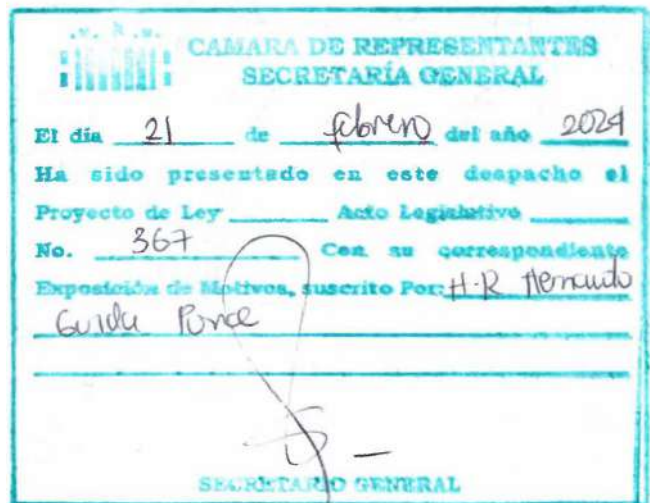 CAMARA DE REPRESENTANTES
SECRETARÍA GENERAL
El día 21 de febrero del año 2024
Ha sido presentado en este despacho el
Proyecto de Ley ______ Acto Legislativo ______
No. 367 Con su correspondiente
Exposición de Motivos, suscrito Por: H.R Hernando
Guida Ponce
SECRETARIO GENERAL